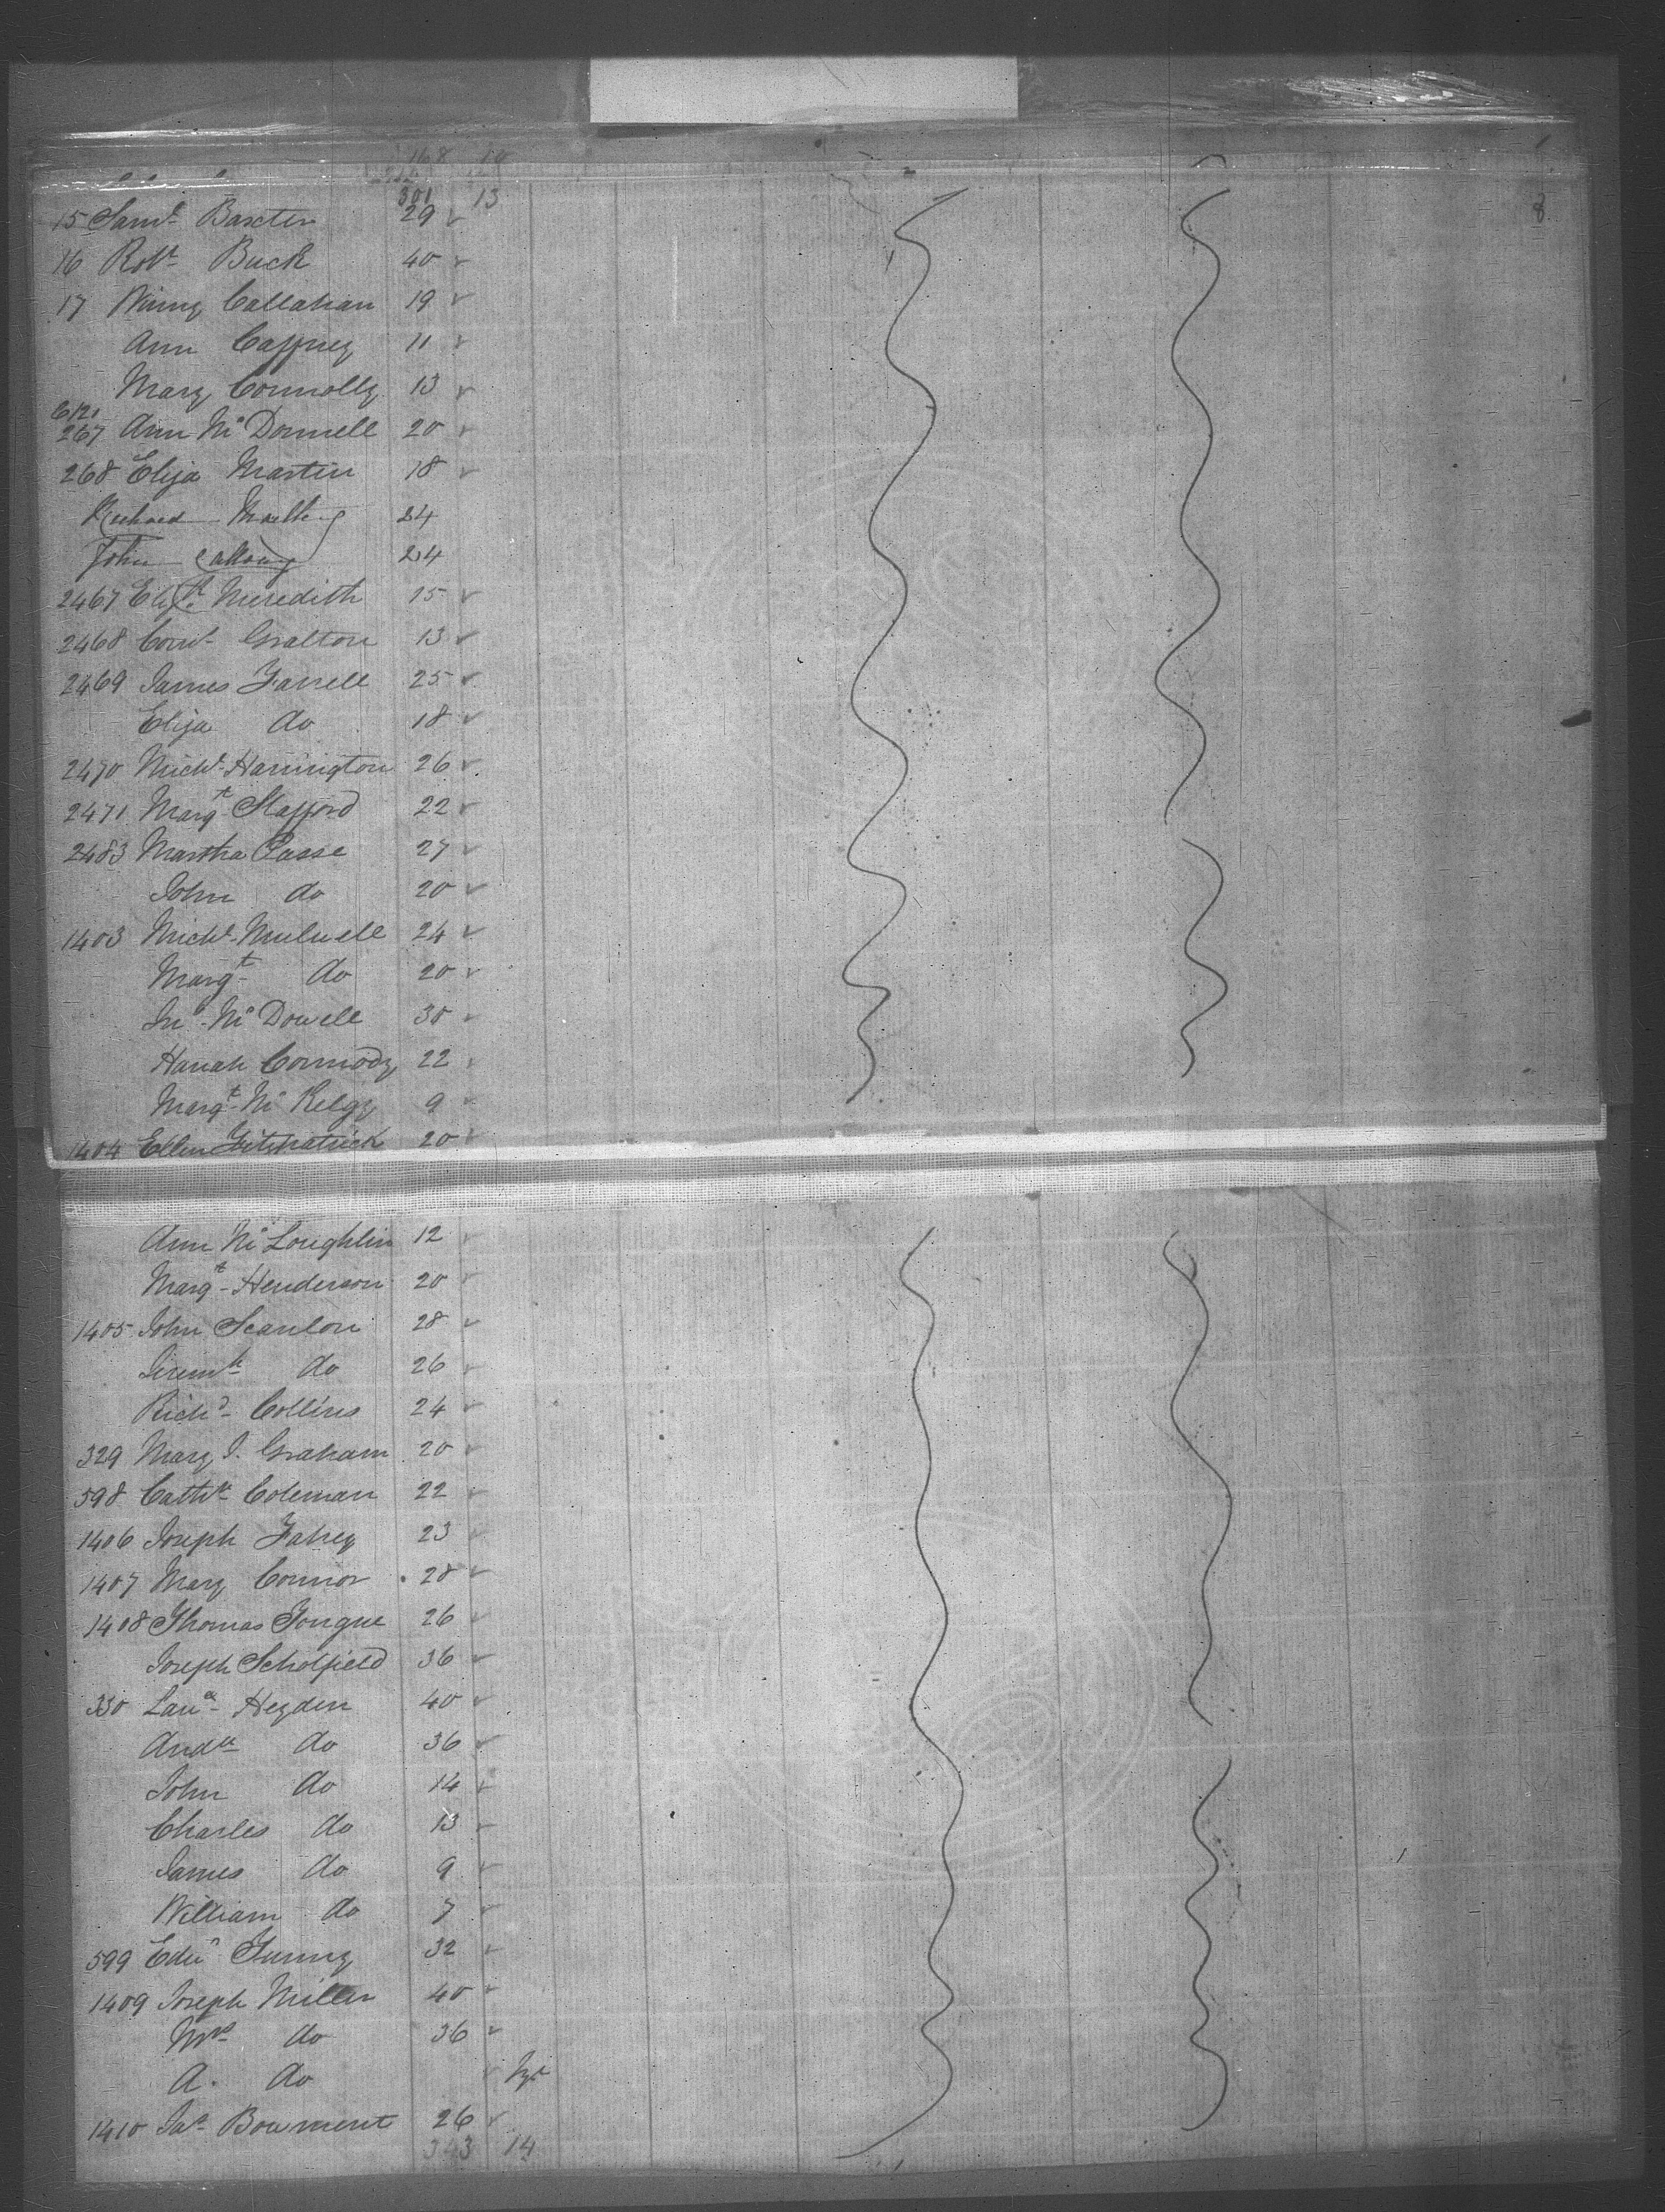 168
301 13
15 Saml Baxter 29
16 Robt Buck 40
17 Winny Callahan 19
Ann Caffrey 11
Mary Connolly 13
612
267 Ann McDonnell 20
268 Eliza Martin 18
Richard 24
John 24
2467 Elizth Meredith 15
2468 Gralton 13
2469 James Farrell 25
Eliza do 18
2470 Michl Harrington 26
2471 Margt Stafford 22
2483 Martha Passe 27
John do 20
1403 Michl 24
Margt do 20
Jno McDowell 30
Hanah Cormody 22
Margt McKelgy 9
1404 Ellen Fitzpatrick 20
Ann McLoughlin 12
Margt Henderson 20
1405 John Scanlon 28
Jeremh do 26
Richd Collins 24
329 Mary J. Graham 20
598 Cathe Coleman 22
1406 Joseph Fahey 23
1407 Mary Connor 28
1408 Thomas Tongue 26
Joseph Scholfield 36
330 Heyden 40
do 36
John do 14
Charles do 13
James do 9
William do 7
599 Edwd Tunny 32
1409 Joseph Miller 40
Mrs do 36
A. do
1410 Jas Bowment 26
343 14